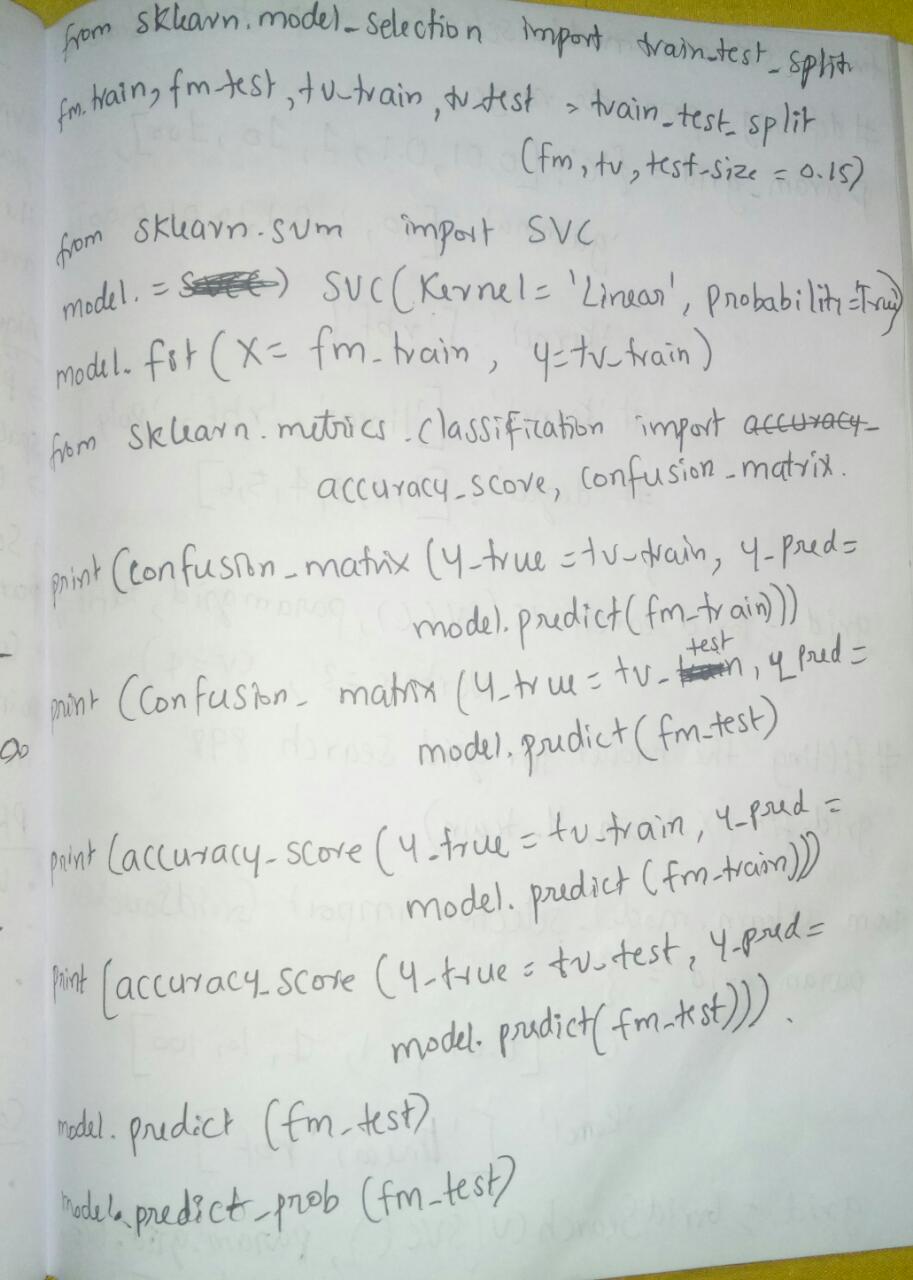 from sklearn.model_selection import train_test_split
fm_train, fm_test, tv_train, tv_test = train_test_split
(fm, tv, test_size = 0.15)
from sklearn.svm import SVC
model. = SVC(Kernel = 'Linear', Probability=True)
model. fit (X= fm_train, y=tv_train)
from sklearn.metrics.classification import accuracy_
accuracy_score, confusion_matrix.
print (confusion_matrix (y_true = tv_train, y_pred=
model.predict(fm_train)))
test
print (confusion_ matrix (y_true = tv_, y_pred =
model.predict(fm_test)
print (accuracy_score (y_true = tv_train, y_pred =
model. predict (fm_train)))
print (accuracy_score (y_true = tv_test, y_pred =
model. predict(fm_test))).
model. predict (fm_test)
model.predict_prob (fm_test)